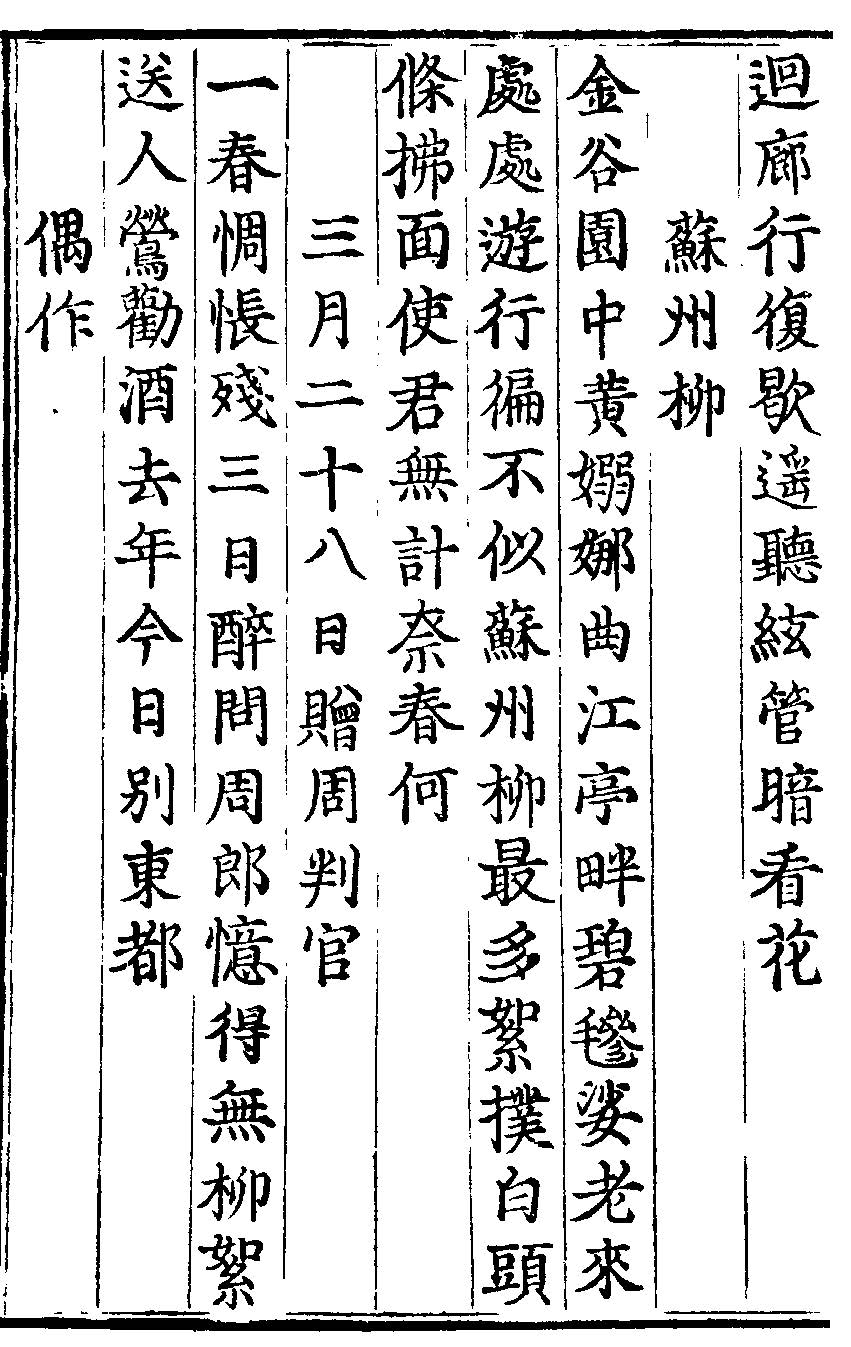 迴廊行復歇遥聽絃管暗看花
蘇州柳
金谷園中黄嫋娜曲江亭畔碧毿娑老來
處處遊行徧不似蘇州柳最多絮撲白頭
條拂面使君無計奈春何
三月二十八日贈周判官
一春惆悵殘三日醉問周郎憶得無柳絮
送人鶯勸酒去年今日别東都
偶作